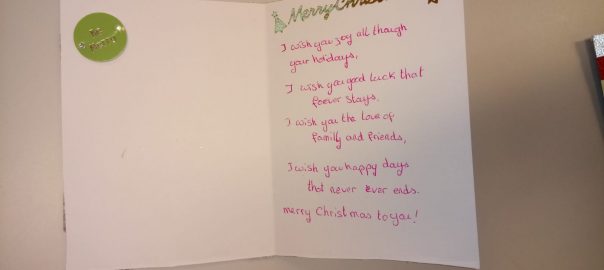 Be
Merry
Merry Christmas
I wish you joy all though
your holidays,
I wish you good luck that
forever stays.
I wish you the love of
familly and friends,
I wish you happy days
that never ever ends.
merry Christmas to you!